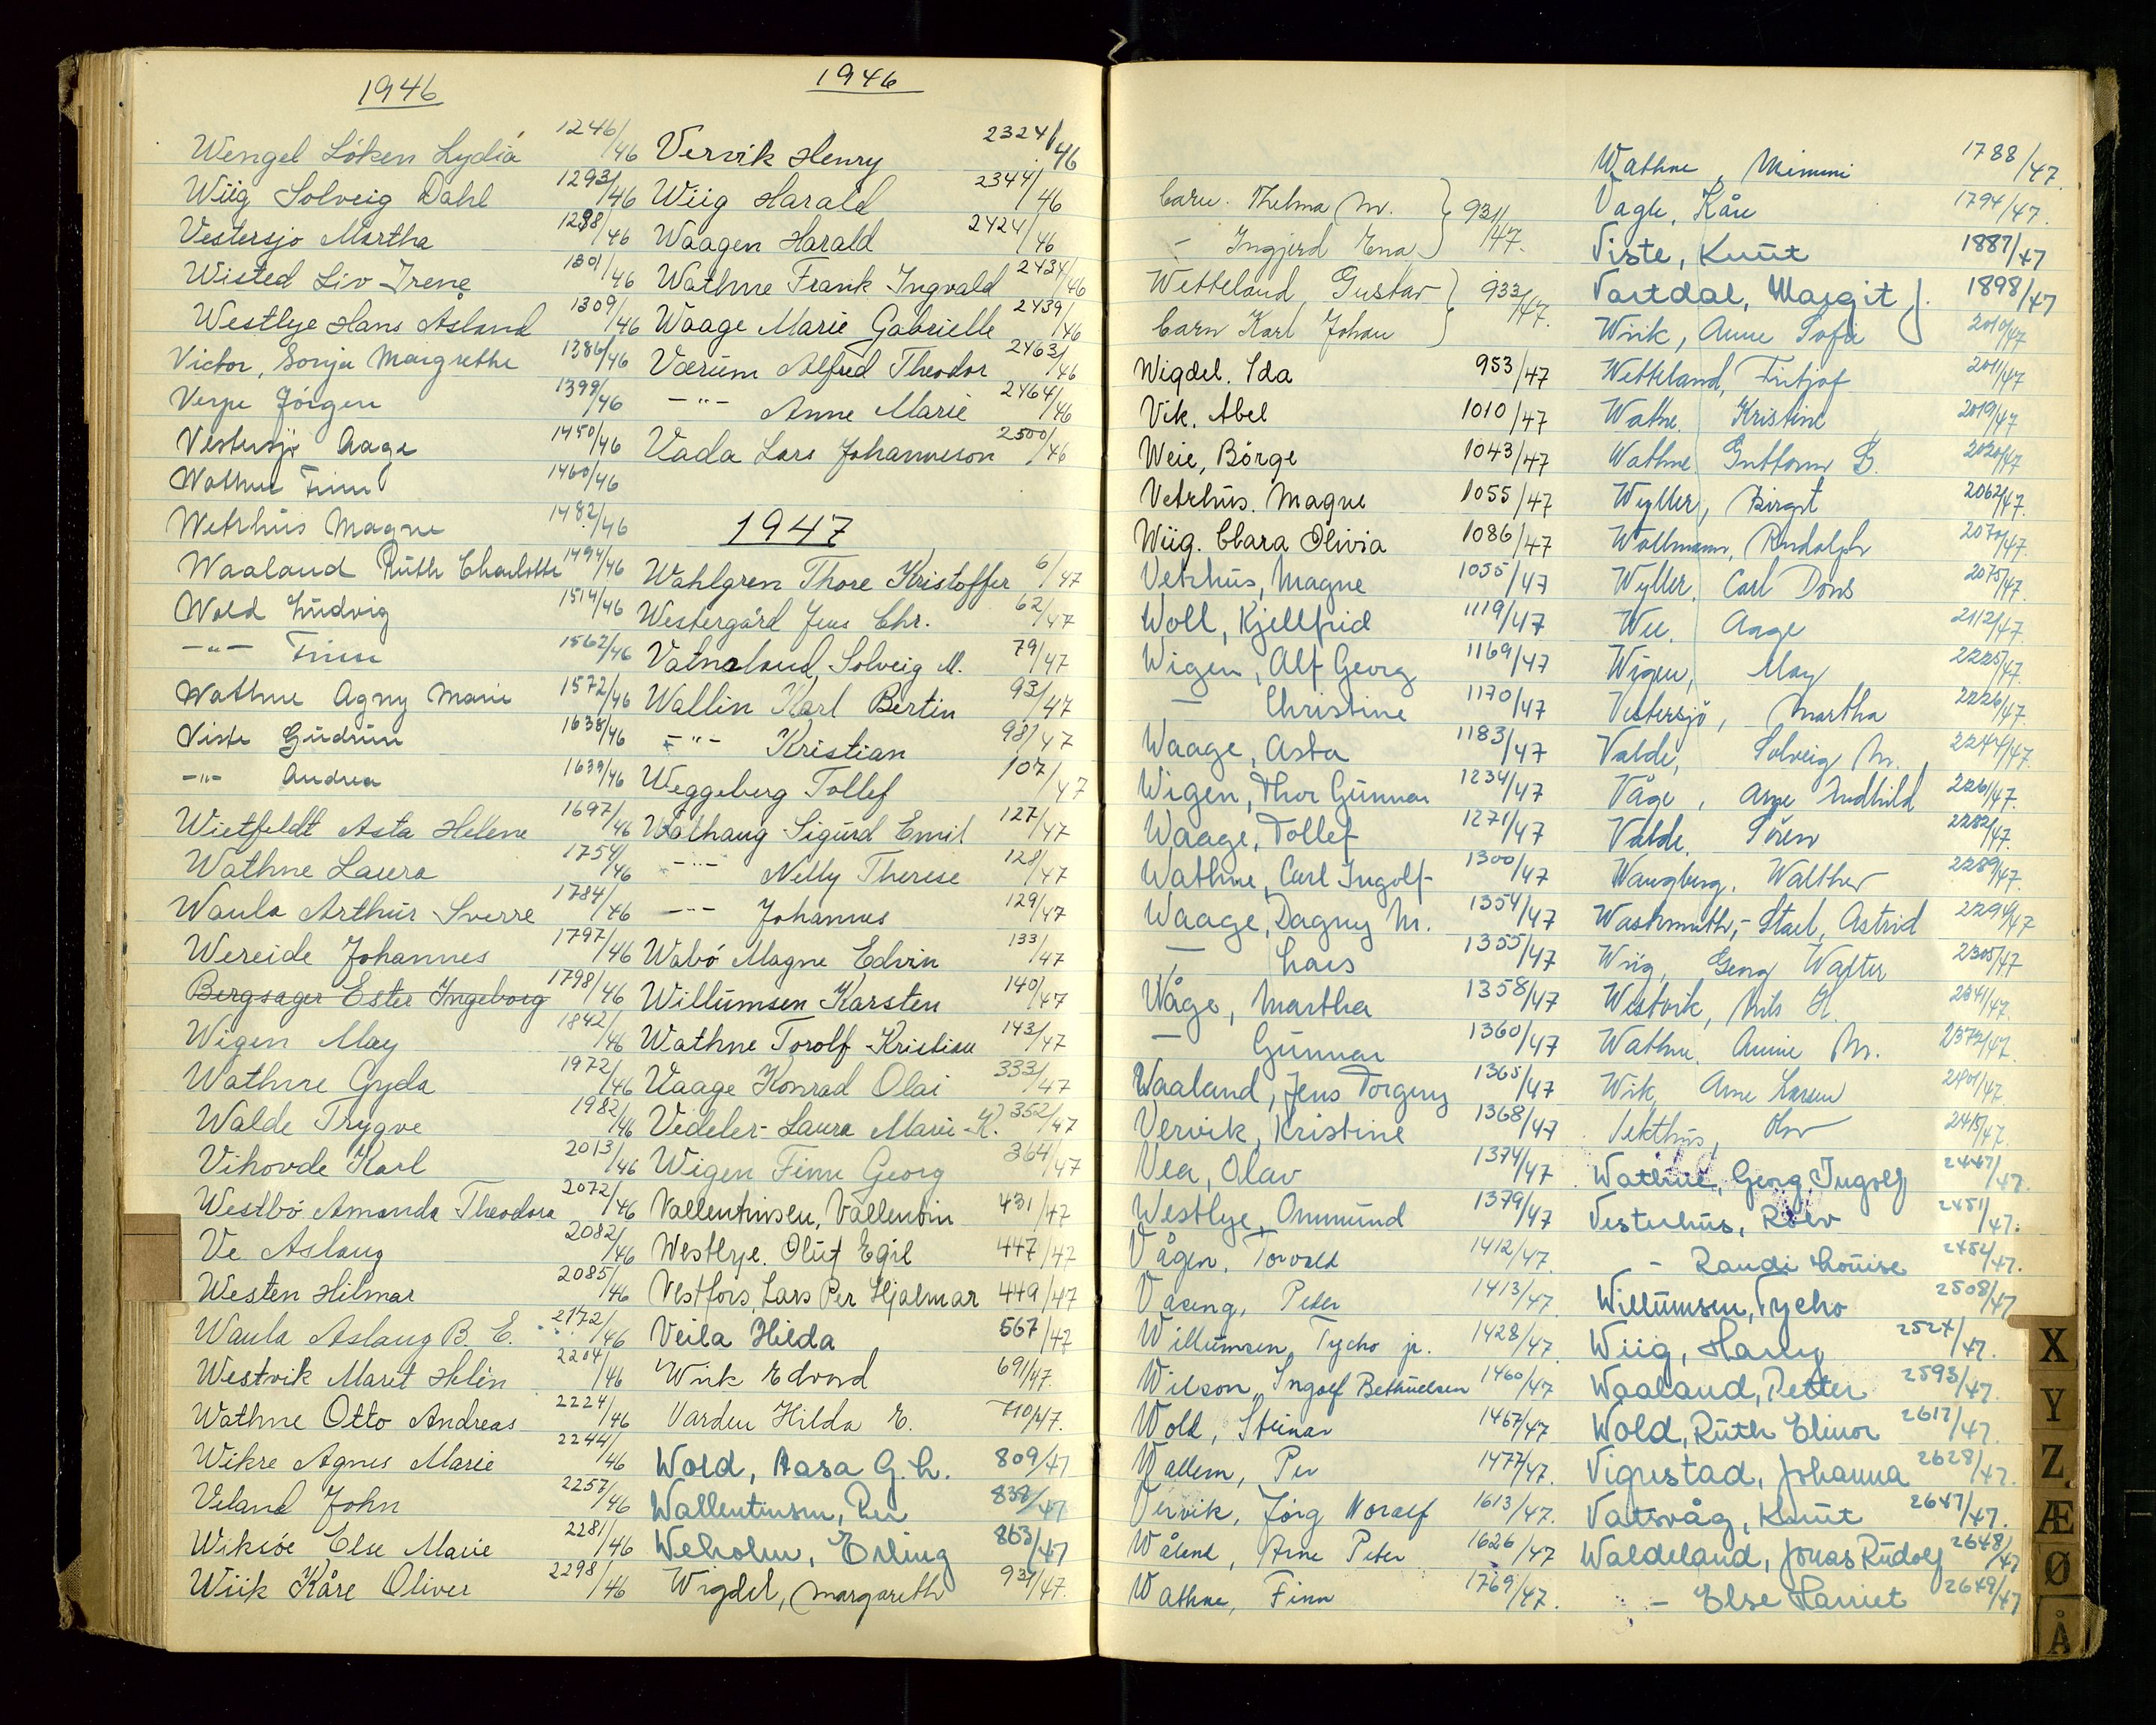 1946
Wengel Lóken Lydia 1246/46
Wiig Solveig Dahl 1293/46
Vestersjo Martha 1298/46
Wisted Liv Irene 1301/46
Westlye Hans Åsland 1309/46
Victor, Sonja Margrethe 1386/46
Verpe Jörgen 1399/46
Vestersjö Aage 1450/46
Wathne Finn 1460/46
Wetrhus Magne 1482/46
Waaland Ruth Charlotte 1494/46
Wold Ludvig 1514/46
-"- Finn 1562/46
Wathne Agny Marie 1572/46
Viste Gudrun 1638/46
-"- Andrea 1639/46
Wietfeldt Asta Helene 1697/46
Wathne Laura 1754/46
Waula Arthur Sverre 1784/46
Wereide Johannes 1797/46
Bergsager Ester Ingeborg 1798/46
Wigen May 1842/46
Wathne Gyda 1972/46
Walde Trygve 1982/46
Vihovde Karl 2013/46
Westbó Amanda Theodora 2072/46
Ve Aslaug 2082/46
Westen Hilmar 2085/46
Waula Aslaug B. E. 2172/46
Westvik Maret Helin 2204/46
Wathne Otto Andreas 2224/46
Wikre Agnes Marie 2244/46
Veland John 2257/46
Wiksóe Else Marie 2281/46
Wiik Kåre Oliver 2298/46
1946
Vervik Henry 2324/46
Wiig Harald 2344/46
Waagen Harald 2424/46
Wathne Frank Ingvald 2434/46
Waage Marie Gabrielle 2439/46
Værum Alfred Theodor 2463/46
-"- Anne Marie 2464/46
Vada Lars Johanneson 2500/46
1947
Wahlgren Thore Kristoffer 6/47
Westergård Jens Chr. 62/47
Vatnaland, Solveig M. 79/47
Wallin Karl Bertin 93/47
-"- Kristian 98/47
Weggeberg Tollef 107/47
Walhaug Sigurd Emil 127/47
-"- Nelly Therese 128/47
-"- Johannes 129/47
Wabó Magne Edvin 133/47
Willumsen Karsten 140/47
Wathne Torolf Kristian 143/47
Vaage Konrad Olai 333/47
Vedeler Laura Marie K. 352/47
Wigen Finn Georg 364/47
Vallentinsen, Vallentin 431/47
Westlye. Oluf Egil 447/47
Vestfors, Lars Per Hjalmar 449/47
Veila Hilda 567/47
Wiik Edvard 691/47
Varden Hilda E. 710/47.
Wold, Aasa G. L. 809/47
Wallentinsen, Per 838/47
Weholm, Erling 863/47
Wigdel, Margareth 931/47.
barn. Thelma M. } 931/47.
- Ingjerd Ena }
Wetteland, Gustav } 933/47.
barn Karl Johan }
Wigdel. Ida 953/47
Vik. Abel 1010/47
Weie, Börge 1043/47
Vetrhus. Magne 1055/47
Wiig. Clara Olivia 1086/47
Vetrhus, Magne 1055/47
Woll, Kjellfrid 1119/47
Wigen, Alf Georg 1169/47
- Christine 1170/47
Waage, Asta 1183/47
Wigen, Thor Gunnar 1234/47
Waage, Tollef 1271/47
Wathne, Carl Ingolf 1300/47
Waage, Dagny M. 1354/47
- Lars 1355/47
Våge, Martha 1358/47
- Gunnar 1360/47
Waaland, Jens Torgeny 1365/47
Vervik, Kristine 1368/47
Vea, Olav 1374/47
Westlye, Ommund 1379/47
Vågen, Torvald 1412/47.
Vaeng, Peter 1413/47.
Willumsen, Tycho jr. 1428/47.
Wilson, Ingolf Bethuelsen 1460/47
Wold, Steinar 1467/47
Wallem, Per 1477/47.
Vervik, Jörg Noralf 1613/47.
Wåland, Arne Peter 1626/47
Wathne, Finn 1769/47.
Wathne, Mimmi 1788/47.
Vagle, Kåre 1794/47.
Viste, Knut 1887/47
Vartdal, Margit } 1898/47
Wiik, Anne Sofie 2010/47
Wetteland, Fritjof 2011/47
Wathne. Kristine 2019/47
Wathne. Guttorm B. 2020/47
Wyller, Birgit 2062/47.
Waltmann, Rudolph 2070/47.
Wyller. Carl Dons 2075/47.
Wee. Aage 2112/47.
Wigen, May 2225/47.
Vestersjö, Martha 2226/47.
Valde, Solveig M. 2244/47.
Våge, Aage Audhild 2261/47.
Valde. Sören 2282/47.
Wangberg. Walther 2289/47.
Washmuth,- Stael, Astrid 2294/47
Wiig, Georg Walter 2305/47
Westvik, Nils H. 2341/47.
Wathne. Annie M. 2372/47.
Wik, Arne Larsen 2401/47.
Vekthus, Olav 2415/47.
Wathne, Georg Ingolf 2447/47.
Vesterhus, Rolv 2451/47.
- Randi Louise 2452/47.
Willumsen, Tycho 2508/47
Wiig, Harry 2527/47.
Waaland, Petter 2593/47.
Wold, Ruth Elinor 2617/47.
Vigrestad, Johanna 2628/47.
Vatsvåg, Knut 2647/47.
Waldeland, Jonas Rudolf 2648/47
- Else Harriet 2649/47
X
Y
Z
Æ
Ø
Å